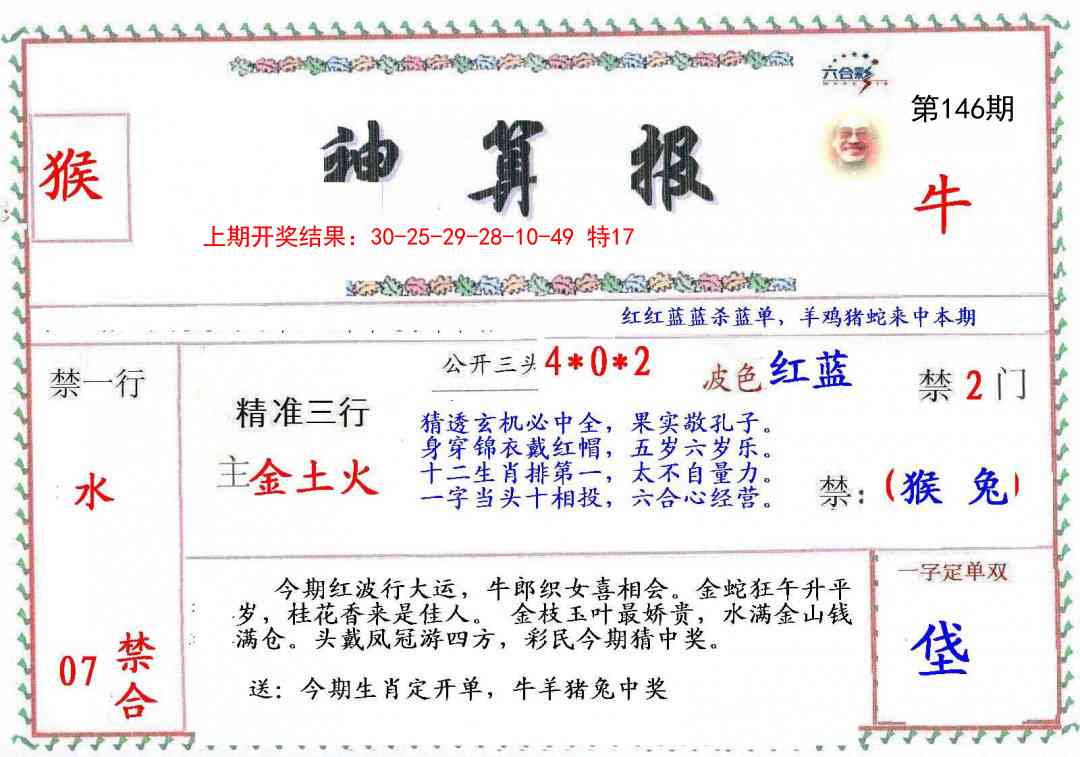 六合彩
第146期
猴
神算报
牛
上期开奖结果：30-25-29-28-10-49 特17
红红蓝蓝杀蓝单，羊鸡猪蛇来中本期
禁一行
公开三头4*0*2
波色红蓝
禁2门
精准三行
主金土火
水
猜透玄机必中全，果实敬孔子。
身穿锦衣戴红帽，五岁六岁乐。
十二生肖排第一，太不自量力。
一字当头十相投，六合心经营。
禁：(猴 兔)
今期红波行大运，牛郎织女喜相会。金蛇狂午升平
岁，桂花香来是佳人。 金枝玉叶最娇贵，水满金山钱
满仓。头戴凤冠游四方，彩民今期猜中奖。
送：今期生肖定开单，牛羊猪兔中奖
07禁合
一字定单双
垡